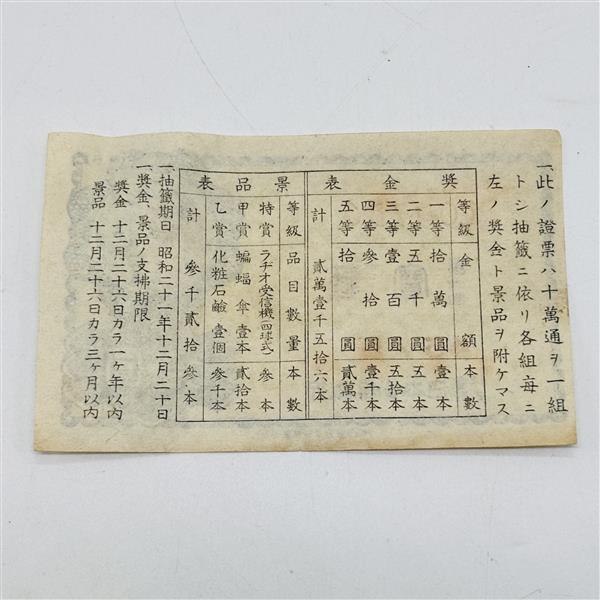 一、此ノ證票ハ十萬通ヲ一組
トシ抽籤ニ依リ各組每ニ
左ノ奬金ト景品ヲ附ケマス
奬金表
等級 金額 本數
一等 拾萬圓 壹本
二等 五千圓 五本
三等 壹百圓 五拾本
四等 參拾圓 壹千本
五等 拾圓 貳萬本
計 貳萬壹千五拾六本
景品表
等級 品目 數量 本數
特賞 ラヂオ受信機(四球式) 參本
甲賞 蝙蝠傘 壹本 貳拾本
乙賞 化粧石鹼 壹個 參千本
計 參千貳拾參本
一、抽籤期日 昭和二十一年十二月二十日
一、奬金、景品ノ支拂期限
奬金 十二月二十六日カラ一ケ年以內
景品 十二月二十六日カラ三ケ月以內